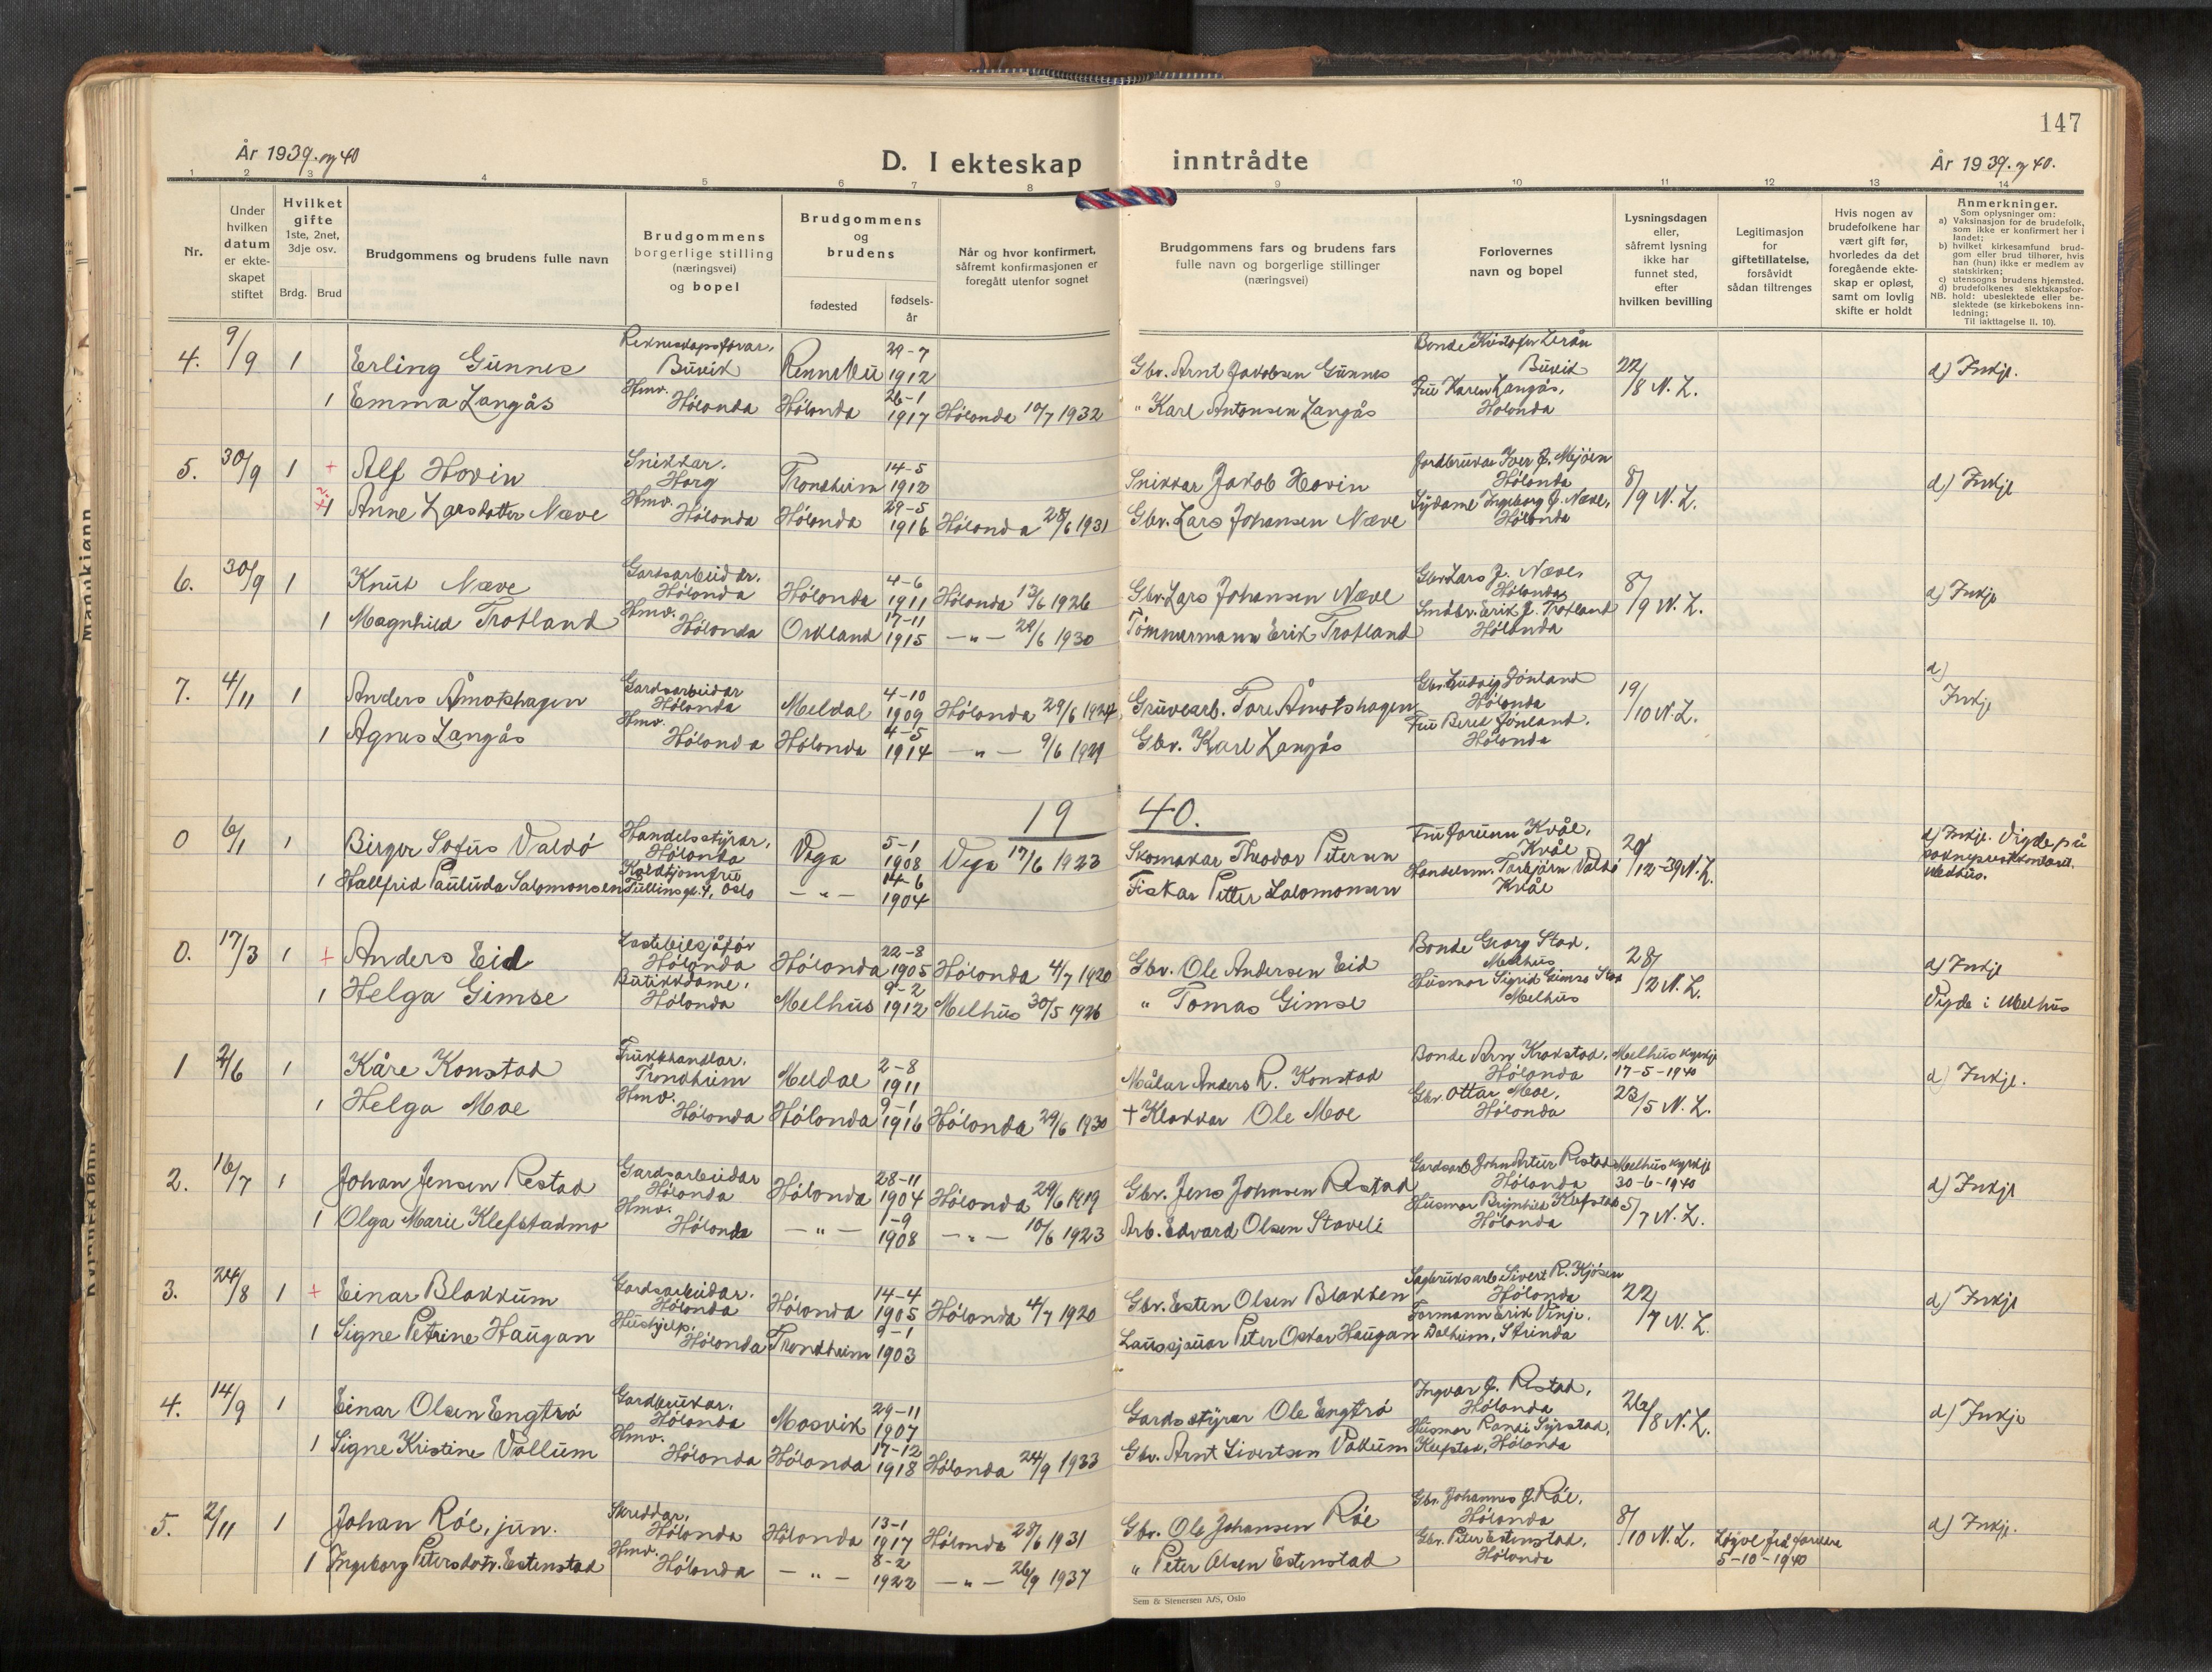 147
År 1939. og 40
D. I ekteskap inntrådte
År 1939. og 40.
1 2 3 4 5 6 7 8 9 10 11 12 13 14
Nr.
Under hvilken datum er ekteskapet stiftet
Hvilket gifte 1ste, 2net, 3dje osv.
Brdg. Brud
Brudgommens og brudens fulle navn
Brudgommens borgerlige stilling (næringsvei) og bopel
Brudgommens og brudens
fødested
fødselsår
Når og hvor konfirmert, såfremt konfirmasjonen er foregått utenfor sognet
Brudgommens fars og brudens fars fulle navn og borgerlige stillinger (næringsvei)
Forlovernes navn og bopel
Lysningsdagen eller, såfremt lysning ikke har funnet sted, efter hvilken bevilling
Legitimasjon for giftetillatelse, forsåvidt sådan tiltrenges
Hvis nogen av brudefolkene har vært gift før, hvorledes da det foregående ekteskap er opløst, samt om lovlig skifte er holdt
Anmerkninger.
Som oplysninger om:
a) Vaksinasjon for de brudefolk, som ikke er konfirmert her i landet;
b) hvilket kirkesamfund brudgom eller brud tilhører, hvis han (hun) ikke er medlem av statskirken;
c) utensogns brudens hjemsted.
d) brudefolkenes slektskapsforhold: ubeslektede eller beslektede (se kirkebokens innledning;
NB. Til iakttagelse II. 10).
4. 9/9 1 Erling Gunnes Rekneskapsførar, Buvik Rennebu 29-7 1912 Gbr. Arnt Jakobsen Gunnes Bonde Kristofer Lerån Buvik 22/8 N. L. d) Inkje.
1 Emma Langås Hmv. Hölonda Hölonda 26-1 1917 Hölonda 10/7 1932 " Karl Antonsen Langås Fru Karen Langås, Hölonda
5. 30/9 1 + Alf Hovin Snikkar. Horg Trondheim 14-5 1912 Snikkar Jakob Hovin Jordbrukar Iver J. Mjöen Hölonda 8/9 N. L. d) Inkje
1 Anne Larsdotter Næve Hmv. Hölonda Hölonda 29-5 1916 Hölonda 28/6 1931 Gbr. Lars Johansen Næve Sydame Ingeborg J. Næve, Hölonda
6. 30/9 1 Knut Næve Gardsarbeidar. Hölonda Hölonda 4-6 1911 Hölonda 13/6 1926 Gbr. Lars Johansen Næve Gbr. Lars J. Næve, Hölonda 8/9 N. L. d) Inkje
1 Magnhild Trotland Hmv. Hölonda Orkland 17-11 1915 -"- 29/6 1930 Tömmermann Erik Trotland Småbr. Erik J. Trotland Hölonda
7. 4/11 1 Anders Åmotshagen Gardsarbeidar Hölonda Meldal 4-10 1909 Hölonda 29/6 1924 Gruvearb. Tore Åmotshagen Gbr. Ludvig Jönland Hölonda 19/10 N. L. d) Inkje
1 Agnes Langås Hmv. Hölonda Hölonda 4-5 1914 -"- 9/6 1929 Gbr. Karl Langås Fru Beret Jönland. Hölonda
19 40.
0 6/1 1 Birger Sofus Valdö Handelsstyrar, Hölonda Vega 5-1 1908 Vega 17/6 1923 Skomakar Theodor Petersen Fru Jorunn Kvåle, Kvål 29/12-39 N. L. d) Inkje. Vigde på sokneprestkontoret. Melhus.
1 Hallfrid Pauluda Salomonsen Koldtjomfru Tullinsgt. 4, Oslo -"- 14-6 1904 Fiskar Petter Salomonsen Handelsm. Torbjörn Valdö Kvål
0. 17/3 1 + Anders Eid Lastebilsjåför Hölonda Hölonda 22-8 1905 Hölonda 4/7 1920 Gbr. Ole Andersen Eid Bonde Georg Stad. Melhus 28/2 N. L. d) Inkje
1 Helga Gimse Butikkdame, Hölonda Melhus 9-2 1912 Melhus 30/5 1926 " Tomas Gimse Husmor Sigrid Gimse Stad Melhus Vigde i Melhus
1 2/6 1 Kåre Konstad Frukthandlar. Trondheim Meldal 2-8 1911 Målar Anders R. Konstad Bonde Arn Krokstad, Hölonda Melhus kyrkje 17-5-1940 d) Inkje.
1 Helga Moe Hmv. Hölonda Hölonda 9-1 1916 Hölonda 29/6 1930 † Klokkar Ole Moe Gbr. Ottar Moe, Hölonda 23/5 N. L.
2. 16/7 1 Johan Jensen Restad Gardsarbeidar Hölonda Hölonda 28-11 1904 Hölonda 29/6 1919 Gbr. Jens Johnsen Restad Gardsarb. John Artur Restad Hölonda Melhus kyrkje 30-6-1940 d) Inkje
1 Olga Marie Klefstadmo Hmv. Hölonda -"- 1-9 1908 -"- 10/6 1923 Arb. Edvard Olsen Staveli Husmor Brynhild Klefstad Hölonda 5/7 N. L.
3. 24/8 1 + Einar Blokkum Gardsarbeidar. Hölonda Hölonda 14-4 1905 Hölonda 4/7 1920 Gbr. Esten Olsen Blokken Sagbruksarb. Sivert R. Kjösen Hölonda 22/7 N. L. d) Inkje
1 Signe Petrine Haugan Hushjelp. Hölonda Trondheim 9-1 1903 Laussjauar Peter Oskar Haugan Formann Erik Vinje. Dalheim, Strinda
4. 14/9 1 Einar Olsen Engtrö Gardbrukar. Hölonda Mosvik 29-11 1907 Gardsstyrar Ole Engtrö Ingvar J. Restad, Hölonda 26/8 N. L. d) Inkje
1 Signe Kristine Vollum Hmv. Hölonda Hölonda 17-12 1918 Hölonda 24/9 1933 Gbr. Arnt Sivertsen Vollum Husmor Randi Syrstad, Klefstad, Hölonda
5. 2/11 1 Johan Röe, jun. Skreddar. Hölonda Hölonda 13-1 1917 Hölonda 28/6 1931 Gbr. Ole Johansen Röe Gbr. Johannes J. Röe, Hölonda 8/10 N. L. d) Inkje.
1 Ingeborg Petersdotr. Estenstad Hmv. Hölonda -"- 8-2 1922 -"- 26/9 1937 " Peter Olsen Estenstad Gbr. Peter Estenstad, Hölonda Löyve frå foreldre 5-10-1940
Sem & Stenersen A/S, Oslo